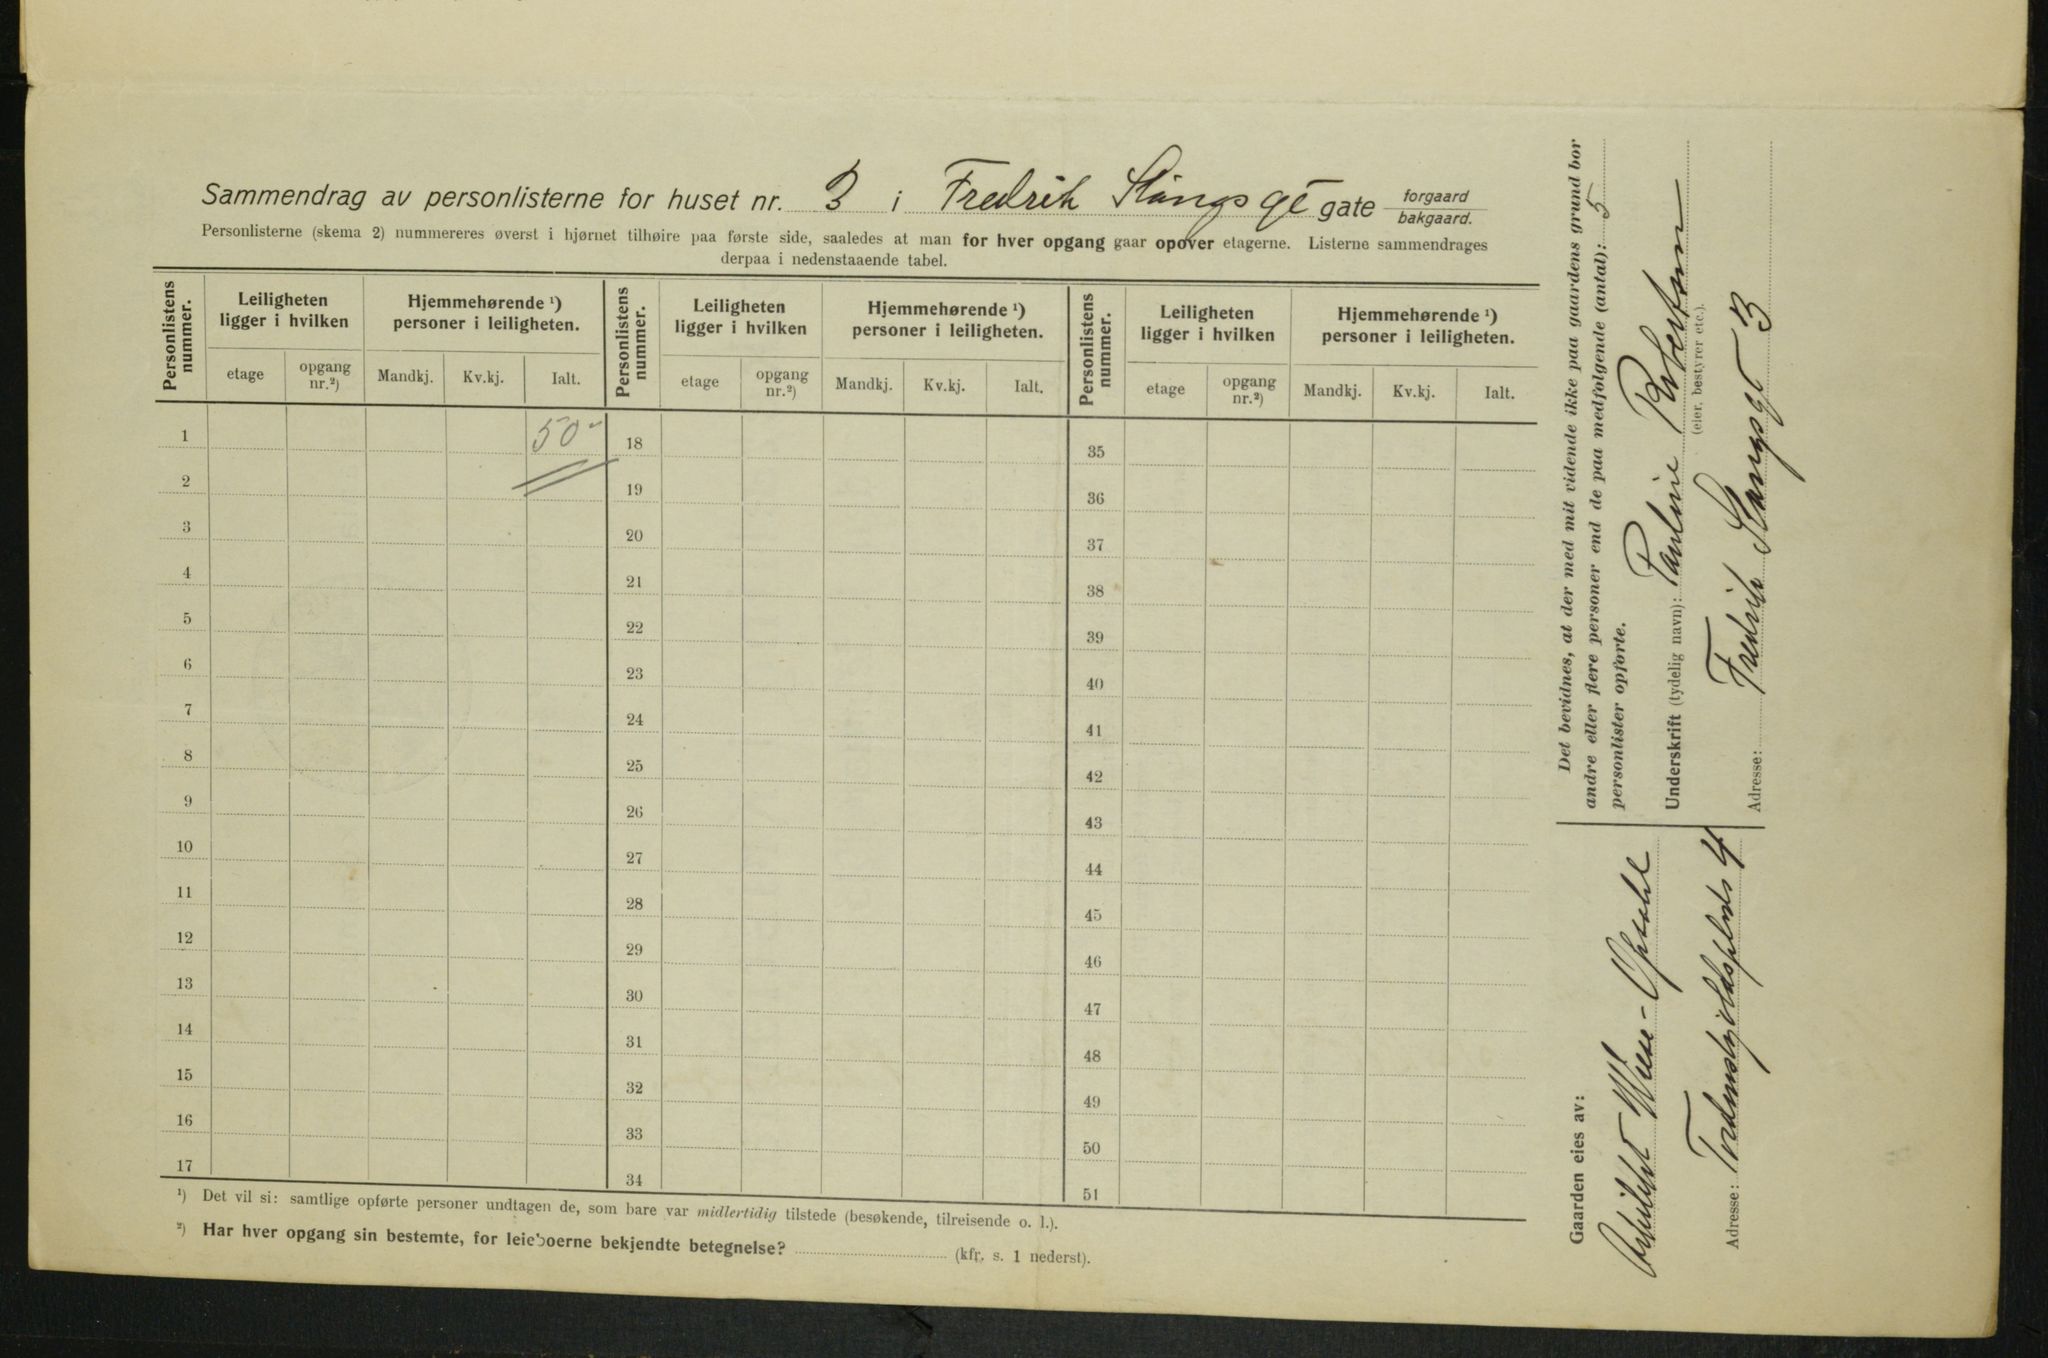 Sammendrag av personlisterne for huset nr. 3 i Fredrik Stangsgt gate forgaard
bakgaard.
Personlisterne (skema 2) nummereres øverst i hjørnet tilhøire paa første side, saaledes at man for hver opgang gaar opover etagerne. Listerne sammendrages
derpaa i nedenstaaende tabel.
Personlistens nummer. Leiligheten ligger i hvilken Hjemmehørende ¹) personer i leiligheten. Personlistens nummer. Leiligheten ligger i hvilken Hjemmehørende ¹) personer i leiligheten. Personlistens nummer. Leiligheten ligger i hvilken Hjemmehørende ¹) personer i leiligheten.
etage opgang nr.²) Mandkj. Kv.kj. Ialt. etage opgang nr.²) Mandkj. Kv.kj. Ialt. etage opgang nr.²) Mandkj. Kv.kj. Ialt.
1 50 18 35
2 19 36
3 20 37
4 21 38
5 22 39
6 23 40
7 24 41
8 25 42
9 26 43
10 27 44
11 28 45
12 29 46
13 30 47
14 31 48
15 32 49
16 33 50
17 34 51
¹) Det vil si: samtlige opførte personer undtagen de, som bare var midlertidig tilstede (besøkende, tilreisende o. l.).
²) Har hver opgang sin bestemte, for leieboerne bekjendte betegnelse? (kfr. s. 1 nederst).
Det bevidnes, at der med mit vidende ikke paa gaardens grund bor
andre eller flere personer end de paa medfølgende (antal): 5
personlister opførte.
Underskrift (tydelig navn): Pauline Robertson
(eier, bestyrer etc.).
Adresse: Fredrik Stangsgt 3
Gaarden eies av:
Arkitekt Wiese-Opsahl
Adresse: Tordenskjoldsplads 4